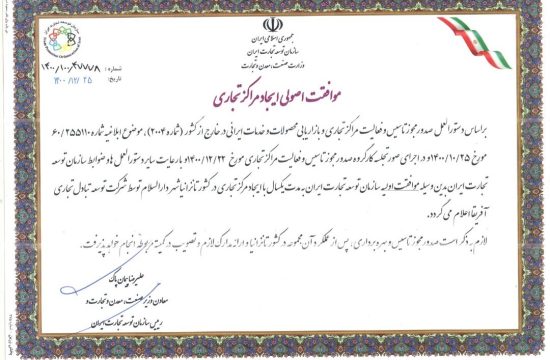 جمهوری اسلامی ایران
سازمان توسعه تجارت ایران
وزارت صنعت، معدن و تجارت
شماره: ۱۴۰۰/۱۰۰/۴۷۷۷۸
تاریخ: ۱۴۰۰/۱۲/۲۵
موافقت اصولی ایجاد مراکز تجاری
براساس دستورالعمل صدور مجوز تاسیس و فعالیت مراکز تجاری و بازاریابی محصولات و خدمات ایرانی در خارج از کشور (شماره ۲۰۰۴)، موضوع ابلاغیه شماره ۶۰/۲۵۵۱۱۰
مورخ ۱۴۰۰/۱۰/۲۵ و در اجرای صورتجلسه کارگروه صدور مجوز تاسیس و فعالیت مراکز تجاری مورخ ۱۴۰۰/۱۲/۲۲ و با رعایت سایر دستورالعمل ها و ضوابط سازمان توسعه
تجارت ایران بدین وسیله موافقت اولیه سازمان توسعه تجارت ایران به مدت یکسال با ایجاد مرکز تجاری در کشور تانزانیا شهر دارالسلام توسط شرکت توسعه تبادل تجاری
آفریقا اعلام می گردد.
لازم به ذکر است صدور مجوز تاسیس و بهره برداری، پس از عملکرد آن مجموعه در کشور تانزانیا و ارائه مدارک لازم و تصویب در کمیته مربوطه انجام خواهد پذیرفت.
علیرضا پیمان پاک
معاون وزیر صنعت، معدن و تجارت و
رییس سازمان توسعه تجارت ایران